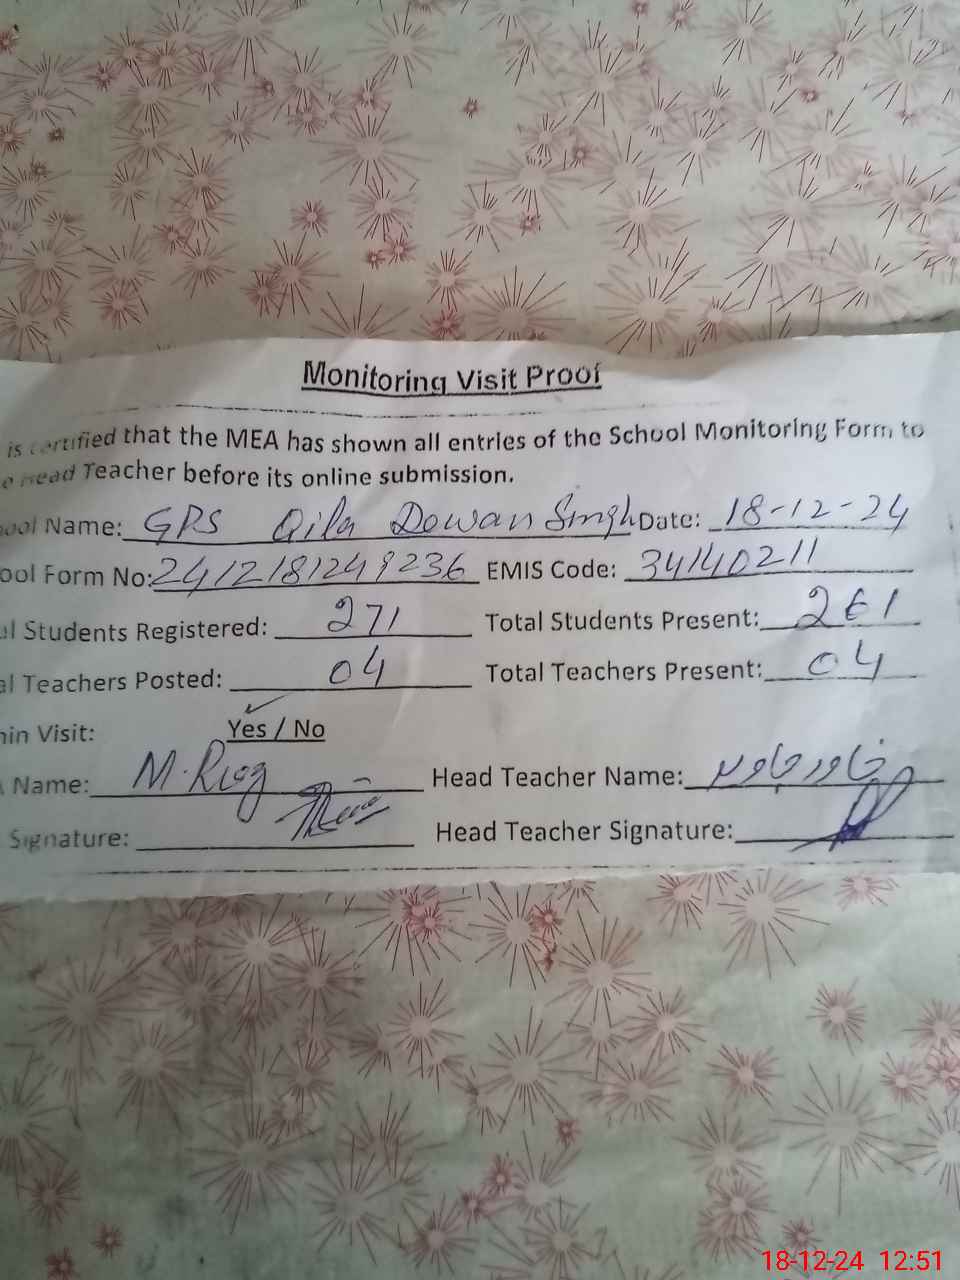 Monitoring Visit Proof
is certified that the MEA has shown all entries of the School Monitoring Form to
Head Teacher before its online submission.
ool Name: GPS Qila Dewan Singh Date: 18-12-24
ool Form No: 2412181249236 EMIS Code: 34140211
al Students Registered: 271 Total Students Present: 261
al Teachers Posted: 04 Total Teachers Present: 04
min Visit: Yes / No
Name: M. Riaz Head Teacher Name: خاور جاوید
Signature: Head Teacher Signature:
18-12-24 12:51